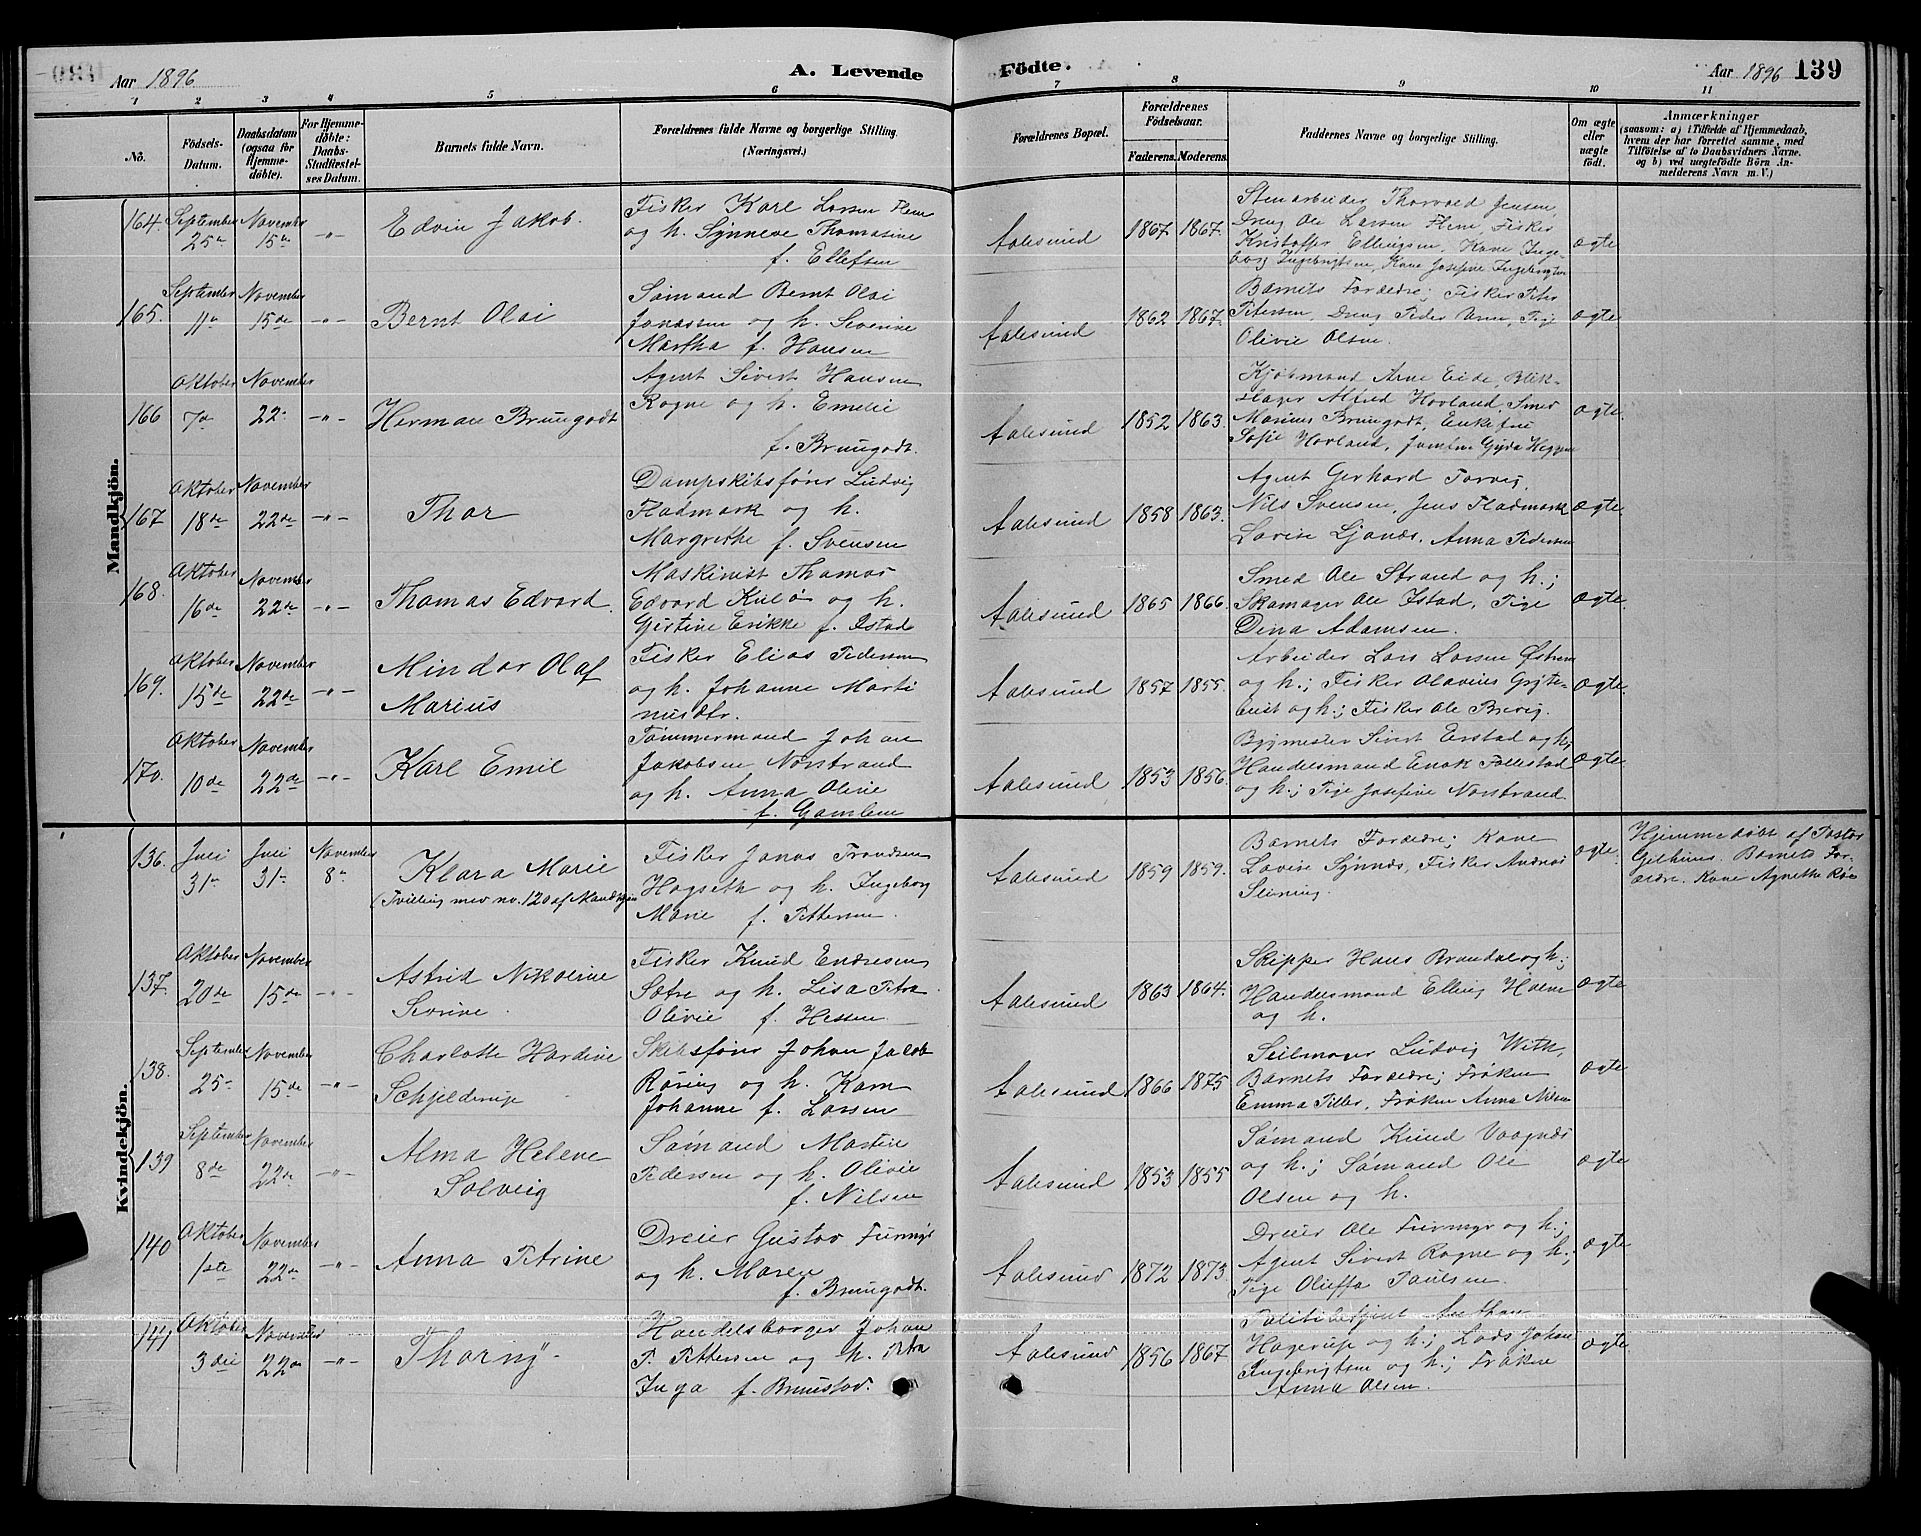 Aar 1896
A. Levende
Födte.
Aar 1896 139
1 2 3 4 5 6 7 8 9 10 11
No.
Födsels-
Datum.
Daabsdatum
(ogsaa for
Hjemme-
döbte).
For Hjemme-
döbte:
Daabs-
Stadfæstel-
ses Datum.
Barnets fulde Navn.
Forældrenes fulde Navne og borgerlige Stilling.
(Næringsvei.)
Forældrenes Bopæl.
Forældrenes
Födselsaar.
Faderens. Moderens.
Faddernes Navne og borgerlige Stilling.
Om ægte
eller
uægte
födt.
Anmærkninger
(saasom: a) i Tilfælde af Hjemmedaab,
hvem der har forrettet samme, med
Tilföielse af to Daabsvidners Navne.
og b) ved uægtefödte Börn An-
melderens Navn m. V.)
Mandkjön.
164. September 25de November 15de -"- Edvin Jakob.
Fisker Karl Larsen Flem
og h. Synneve Thomasine
f. Ellefsen
Aalesund 1867 1867.
Stenarbeider Thorvald Jensen,
Dreng Ole Larsen Flem, Fisker
Kristoffer Ellingsen, Kone Inge-
borg Ingebrigtsen, Kone Josefine Ingebrigtsen
ægte
165. September 11te November 15de -"- Bernt Olai
Sømand Bernt Olai
Jonassen og h. Severine
Martha f. Hansen
Aalesund 1862 1867.
Barnets Forældre; Fisker Peter
Petersen, Dreng Peder, Pige
Olivie Olsen.
ægte
166 Oktober 7de November 22- -"- Herman Brungodt
Agent Sivert Hansen
Rogne og h. Emelie
f. Brungodt.
Aalesund 1852 1863.
Kjøbmand Arne Eide, Blik-
slager Alfred Hovland, Smed
Marius Brungodt, Enkefru
Sofie Hovland, Jomfru Gyda Heggen
ægte.
167 Oktober 18de November 22de -"- Thor
Dampskibsfører Ludvig
Fladmark og h.
Margrethe f. Svensen
Aalesund 1858 1863.
Agent Gerhard Torvig,
Nils Svensen, Jens Fladmark
Lovise Ljanes, Anna Pedersen
ægte.
168. Oktober 16de November 22de -"- Thomas Edvard.
Maskinist Thomas
Edvard Kulø og h.
Gjertine Erikke f. Istad
Aalesund 1865 1866.
Smed Ole Strand og h.;
Skomager Ole Istad, Pige
Dina Adamsen.
ægte.
169. Oktober 15de November 22de -"- Mindor Olaf
Marius
Fisker Elias Pedersen
og h. Johanne Marti
nusdtr.
Aalesund 1857 1855.
Arbeider Lars Larsen Østrem
og h.; Fisker Olavius Gryte-
bust og h.; Fisker Ole Brevig.
ægte.
170. Oktober 10de November 22de -"- Karl Emil
Tømmermand Johan
Jakobsen Norstrand
og h. Anna Oline
f. Gamlem
Aalesund 1853 1856.
Bygmester Sivert Erstad og h.;
Handelsmand Enok Follestad
og h.; Pige Josefine Norstrand
ægte.
Kvindekjön.
136. Juli 31te Juli 31te November 8de Klara Marie
(Tvilling med no. 120 af Mandkjøn
Fisker Jonas Trondsen
Hogseth og h. Ingeborg
Marie f. Pettersen.
Aalesund 1859 1859.
Barnets Forældre; Kone
Lovise Synnes, Fisker Andreas
Slining.
ægte.
Hjemmedøbt af Pastor
Gelhius. Barnets For-
ældre. Kone Agnethe Røe
137. Oktober 20de November 15de -"- Astrid Nikoline
Severine.
Fisker Knud Endresen
Sætre og h. Lisa Petra
Olivie f. Hessen
Aalesund 1863 1864.
Skipper Hans Brandal og h;
Handelsmand Elling Holm
og h.
ægte
138. September 25- November 15de -"- Charlotte Hardine
Schjelderup
Skibsfører Johan Jacob
Røring og h. Karn
Johanne f. Larsen
Aalesund 1866 1875
Seilmager Ludvig With,
Barnets Forældre; Frøken
Emma Tiller, Frøken Anna Nilsen
ægte
139 September 8de November 22de -"- Alma Helene
Solveig
Sømand Martin
Pedersen og h. Olivie
f. Nilsen
Aalesund 1853 1855
Sømand Knud Vaagnes
og h.; Sømand Ole
Olsen og h.
ægte
140 Oktober 1ste November 22de -"- Anna Petrine
Dreier Gustav Furmyr
og h. Maren
f. Brungodt.
Aalesund 1872 1873.
Dreier Ole Furmyr og h.;
Agent Sivert Rogne og h.;
Pige Oleffa Paulsen.
ægte
141 Oktober 3die November 22de -"- Thorny -
Handelsborger Johan
P. Pettersen og h. Petra
Inga f. Brunstad.
Aalesund 1856 1867
Politibetjent
Hagerup og h.; Lods Johan
Ingebrigtsen og h.; Frøken
Anna Olsen.
ægte